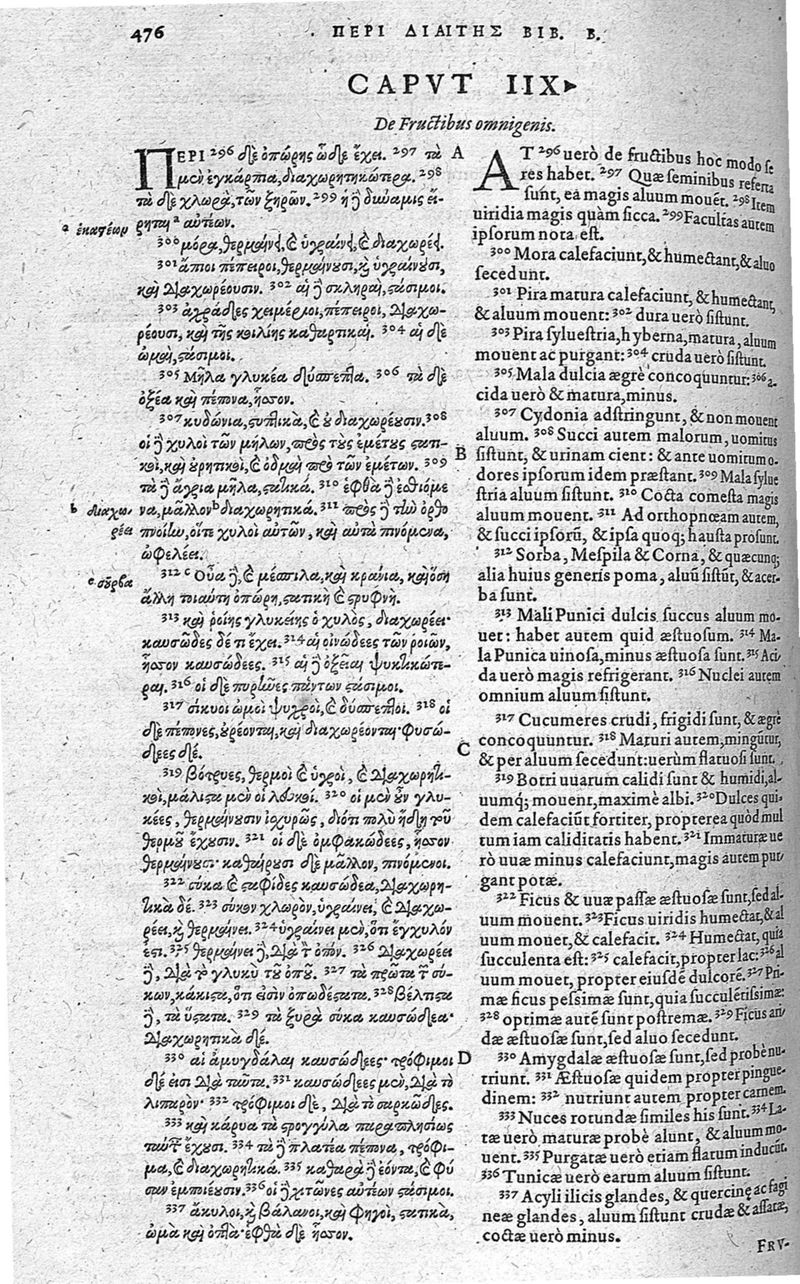 476
ΠΕΡΙ ΔΙΑΙΤΗΣ ΒΙΒ. Β.
CAPVT IIX
De Fructibus omnigenis.
ΠΕΡΙ ²⁹⁶ δὲ ὀπώρης ὧδε ἔχει. ²⁹⁷ τὰ
μὲν ἐγκάρπια, διαχωρητικώτερα. ²⁹⁸
τὰ δὲ χλωρὰ, τῶν ξηρῶν. ²⁹⁹ ἡ δὲ δύναμις εἴ-
ρηται ᵃ αὐτέων.
ᵃ ἑκατέων
³⁰⁰ μόρα, θερμαίνει, καὶ ὑγραίνει, καὶ διαχωρέει.
³⁰¹ ἄπιοι πέπειροι, θερμαίνουσι, καὶ ὑγραίνουσι,
καὶ διαχωρέουσιν. ³⁰² αἱ δὲ σκληραὶ, στάσιμοι.
³⁰³ ἀχράδες χειμέριοι, πέπειροι, διαχω-
ρέουσι, καὶ τῆς κοιλίης καθαρτικαί. ³⁰⁴ αἱ δὲ
ὠμαὶ, στάσιμοι.
³⁰⁵ Μῆλα γλυκέα δύσπεπτα. ³⁰⁶ τὰ δὲ
ὀξέα καὶ πέπονα, ἧσσον.
³⁰⁷ κυδώνια, στυπτικὰ, καὶ οὐ διαχωρέουσιν. ³⁰⁸
οἱ δὲ χυλοὶ τῶν μήλων, πρὸς τοὺς ἐμέτους στατι-
κοὶ, καὶ οὐρητικοὶ, καὶ ὀδμαὶ πρὸ τῶν ἐμέτων. ³⁰⁹
τὰ δὲ ἄγρια μῆλα, στατικά. ³¹⁰ ἑφθὰ δὲ ἐσθιόμε
να, μᾶλλον ᵇ διαχωρητικά. ³¹¹ πρὸς δὲ τὴν ὀρθο
πνοίην, οἵτε χυλοὶ αὐτῶν, καὶ αὐτὰ πινόμενα,
ὠφελέει.
ᵇ διαχω-
ρέει
³¹² ᶜ Οὖα δὲ, καὶ μέσπιλα, καὶ κράνια, καὶ ὅση
ἄλλη τοιαύτη ὀπώρη, στατικὴ καὶ στρυφνή.
ᶜ σοῦρβα
³¹³ καὶ ῥοίης γλυκείης ὁ χυλὸς, διαχωρέει·
καυσῶδες δέ τι ἔχει. ³¹⁴ αἱ οἰνώδεες τῶν ῥοιῶν,
ἧσσον καυσώδεες. ³¹⁵ αἱ δὲ ὀξεῖαι ψυκτικώτε-
ραι. ³¹⁶ οἱ δὲ πυρῆνες πάντων στάσιμοι.
³¹⁷ σίκυοι ὠμοὶ ψυχροὶ, καὶ δύσπεπτοι. ³¹⁸ οἱ
δὲ πέπονες, οὐρέονται, καὶ διαχωρέονται· φυσώ-
δεες δέ.
³¹⁹ βότρυες, θερμοὶ καὶ ὑγροὶ, καὶ διαχωρητι-
κοὶ, μάλιστα μὲν οἱ λευκοί. ³²⁰ οἱ μὲν οὖν γλυ-
κέες, θερμαίνουσιν ἰσχυρῶς, διότι πολὺ ἤδη τοῦ
θερμοῦ ἔχουσιν. ³²¹ οἱ δὲ ὀμφακώδεες, ἧσσον
θερμαίνουσι· καθαίρουσι δὲ μᾶλλον, πινόμενοι.
³²² σῦκα καὶ σταφίδες καυσώδεα, διαχωρη-
τικὰ δέ. ³²³ σῦκον χλωρὸν, ὑγραίνει, καὶ διαχω-
ρέει, καὶ θερμαίνει. ³²⁴ ὑγραίνει μὲν, ὅτι ἔγχυλόν
ἐστι. ³²⁵ θερμαίνει δὲ, διὰ τὸν ὀπόν. ³²⁶ διαχωρέει
δὲ, διὰ τὸ γλυκὺ τοῦ ὀποῦ. ³²⁷ τὰ πρῶτα τῶν σύ-
κων, κάκιστα, ὅτι εἰσὶν ὀπωδέστατα. ³²⁸ βέλτιστα
δὲ, τὰ ὕστατα. ³²⁹ τὰ ξηρὰ σῦκα καυσώδεα·
διαχωρητικὰ δέ.
³³⁰ αἱ ἀμυγδάλαι καυσώδεες· τρόφιμοι
δέ εἰσι διὰ ταῦτα. ³³¹ καυσώδεες μὲν, διὰ τὸ
λιπαρόν· ³³² τρόφιμοι δὲ, διὰ τὸ σαρκῶδες.
³³³ καὶ κάρυα τὰ στρογγύλα παραπλησίως
ταύτῃ ἔχουσι. ³³⁴ τὰ δὲ πλατέα πέπονα, τρόφι-
μα, καὶ διαχωρητικά. ³³⁵ καθαρὰ δὲ ἐόντα, καὶ φῦ
σαν ἐμποιέουσιν. ³³⁶ οἱ δὲ χιτῶνες αὐτέων στάσιμοι.
³³⁷ ἄκυλοι, καὶ βάλανοι, καὶ φηγοὶ, στατικὰ,
ὠμὰ καὶ ὀπτά· ἑφθὰ δὲ ἧσσον.
A
B
C
D
AT ²⁹⁶ uerò de fructibus hoc modo se
res habet. ²⁹⁷ Quæ seminibus referta
sunt, ea magis aluum mouẽt. ²⁹⁸ Item
uiridia magis quàm sicca. ²⁹⁹ Facultas autem
ipsorum nota est.
³⁰⁰ Mora calefaciunt, & humectant, & aluo
secedunt.
³⁰¹ Pira matura calefaciunt, & humectant,
& aluum mouent: ³⁰² dura uerò sistunt.
³⁰³ Pira syluestria, hyberna, matura, aluum
mouent ac purgant: ³⁰⁴ cruda uerò sistunt.
³⁰⁵ Mala dulcia ægrè concoquuntur: ³⁰⁶ a-
cida uerò & matura, minus.
³⁰⁷ Cydonia adstringunt, & non mouent
aluum. ³⁰⁸ Succi autem malorum, uomitus
sistunt, & urinam cient: & ante uomitum o-
dores ipsorum idem præstant. ³⁰⁹ Mala sylue
stria aluum sistunt. ³¹⁰ Cocta comesta magis
aluum mouent. ³¹¹ Ad orthopnœam autem,
& succi ipsorũ, & ipsa quoq; hausta prosunt.
³¹² Sorba, Mespila & Corna, & quæcunq;
alia huius generis poma, aluũ sistũt, & acer-
ba sunt.
³¹³ Mali Punici dulcis succus aluum mo-
uet: habet autem quid æstuosum. ³¹⁴ Ma-
la Punica uinosa, minus æstuosa sunt. ³¹⁵ Aci
da uerò magis refrigerant. ³¹⁶ Nuclei autem
omnium aluum sistunt.
³¹⁷ Cucumeres crudi, frigidi sunt, & ægrè
concoquuntur. ³¹⁸ Maturi autem, minguntur,
& per aluum secedunt: uerùm flatuosi sunt.
³¹⁹ Botri uuarum calidi sunt & humidi, al-
uumq́; mouent, maximè albi. ³²⁰ Dulces qui-
dem calefaciũt fortiter, propterea quòd mul
tum iam caliditatis habent. ³²¹ Immaturæ ue
rò uuæ minus calefaciunt, magis autem pur
gant potæ.
³²² Ficus & uuæ passæ æstuosæ sunt, sed al-
uum mouent. ³²³ Ficus uiridis humectat, & al
uum mouet, & calefacit. ³²⁴ Humectat, quia
succulenta est: ³²⁵ calefacit, propter lac: ³²⁶ al
uum mouet, propter eiusdẽ dulcorẽ. ³²⁷ Pri-
mæ ficus pessimæ sunt, quia succulẽtissimæ:
³²⁸ optimæ autẽ sunt postremæ. ³²⁹ Ficus ari-
dæ æstuosæ sunt, sed aluo secedunt.
³³⁰ Amygdalæ æstuosæ sunt, sed probè nu-
triunt. ³³¹ Æstuosæ quidem propter pingue-
dinem: ³³² nutriunt autem propter carnem.
³³³ Nuces rotundæ similes his sunt. ³³⁴ La-
tæ uerò maturæ probè alunt, & aluum mo-
uent. ³³⁵ Purgatæ uerò etiam flatum inducũt.
³³⁶ Tunicæ uerò earum aluum sistunt.
³³⁷ Acyli ilicis glandes, & quercinę ac fagi
neæ glandes, aluum sistunt crudæ & assatæ,
coctæ uerò minus.
FRV-